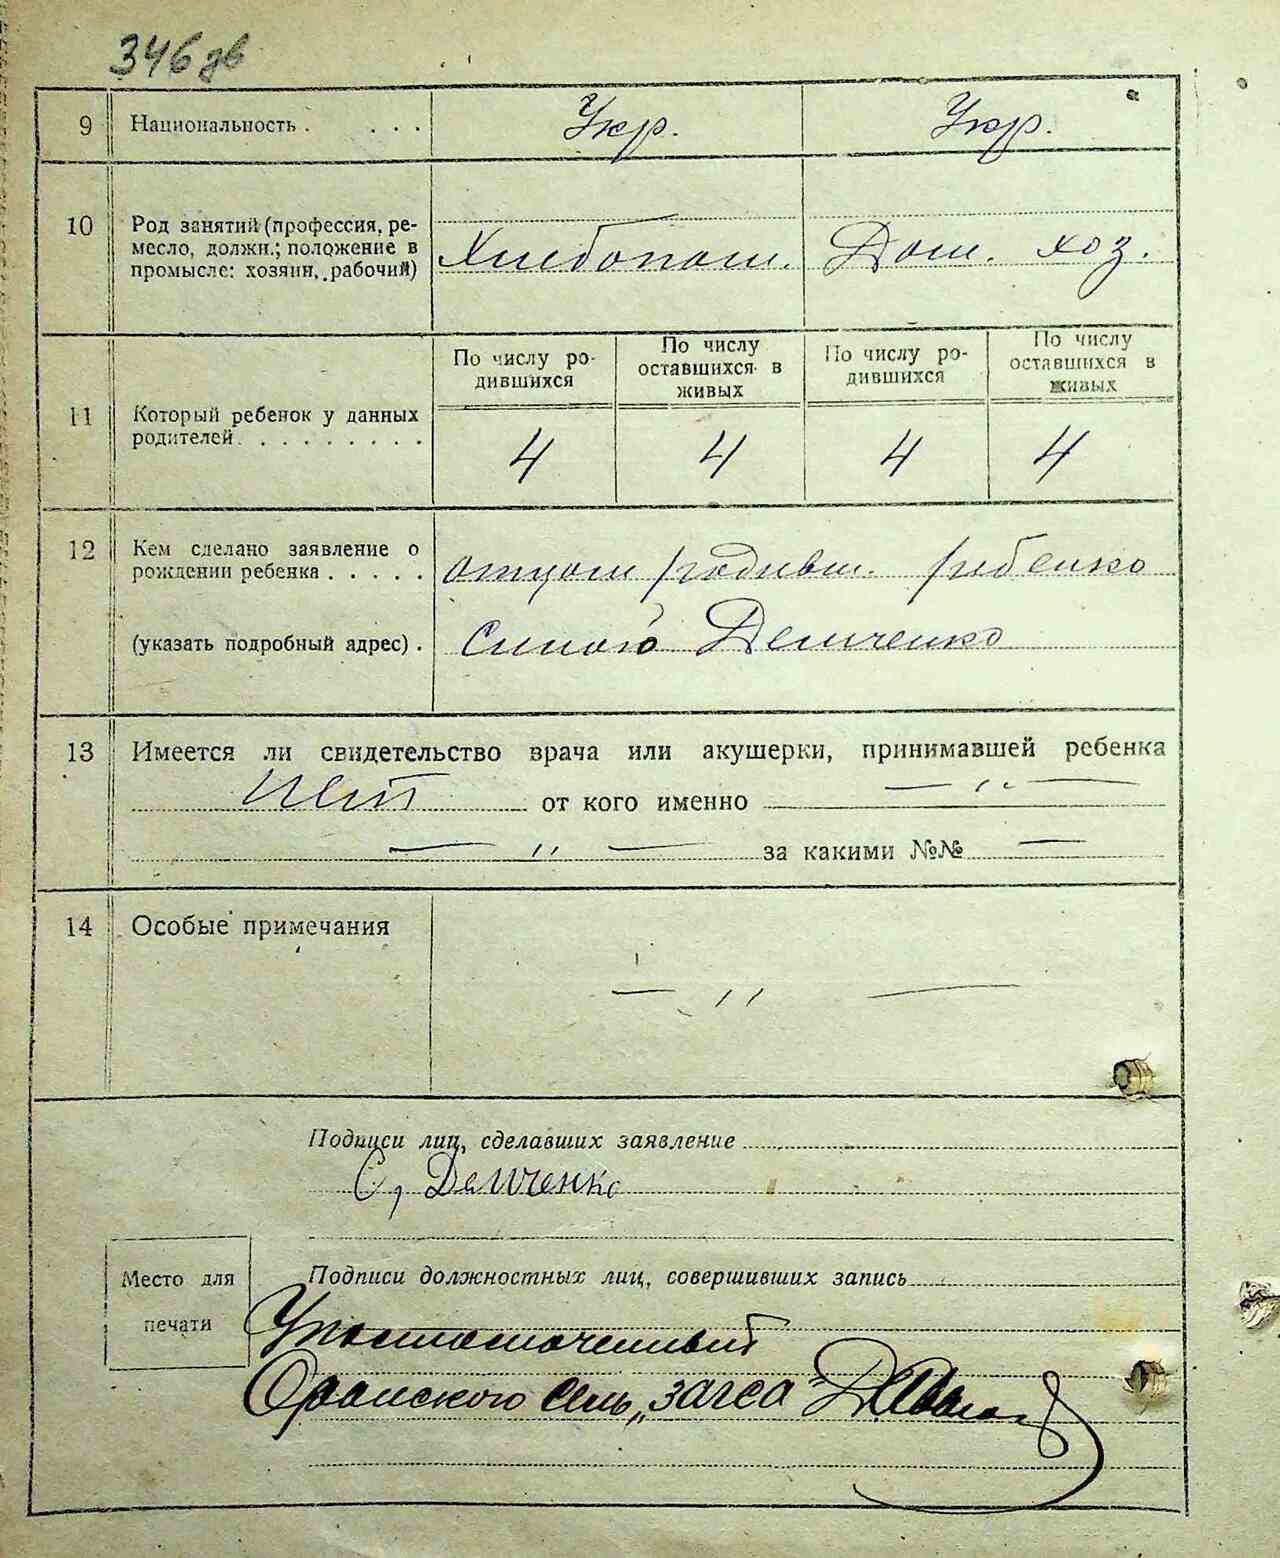 346 зв
9 Национальность . . . . Укр. Укр.
10 Род занятий (профессия, ре-
месло, должн.; положение в
промысле: хозяин, рабочий) Хлебопаш. Дом. хоз.
11 Который ребенок у данных
родителей. . . . . . . . .
По числу ро-
дившихся
По числу
оставшихся в
живых
По числу ро-
дившихся
По числу
оставшихся в
живых
4 4 4 4
12 Кем сделано заявление о
рождении ребенка . . . . . отцом родивш. ребенка
(указать подробный адрес) . Демченко
13 Имеется ли свидетельство врача или акушерки, принимавшей ребенка
нет от кого именно — „ —
— „ — за какими №№ —
14 Особые примечания
— „ —
Подписи лиц, сделавших заявление
С, Демченко
Место для
печати
Подписи должностных лиц, совершивших запись
Уполномоченный
сель „загса"